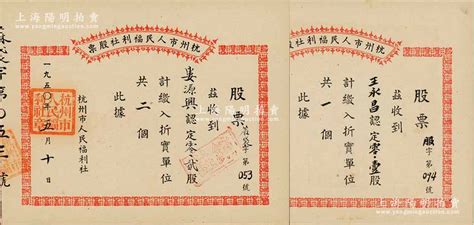 上海陽明拍賣
www.yangmingauction.com
票股社利福民人市州杭
股票
字第053號
茲收到
婁源興認定零·貳股
計繳入折實單位
共二個
此據
杭州市人民福利社
一九五〇年五月十日
票股社利福民人市州杭
股票
服字第074號
茲收到
王永昌認定零·壹股
計繳入折實單位
共一個
此據
上海陽明拍賣
www.yangmingauction.com